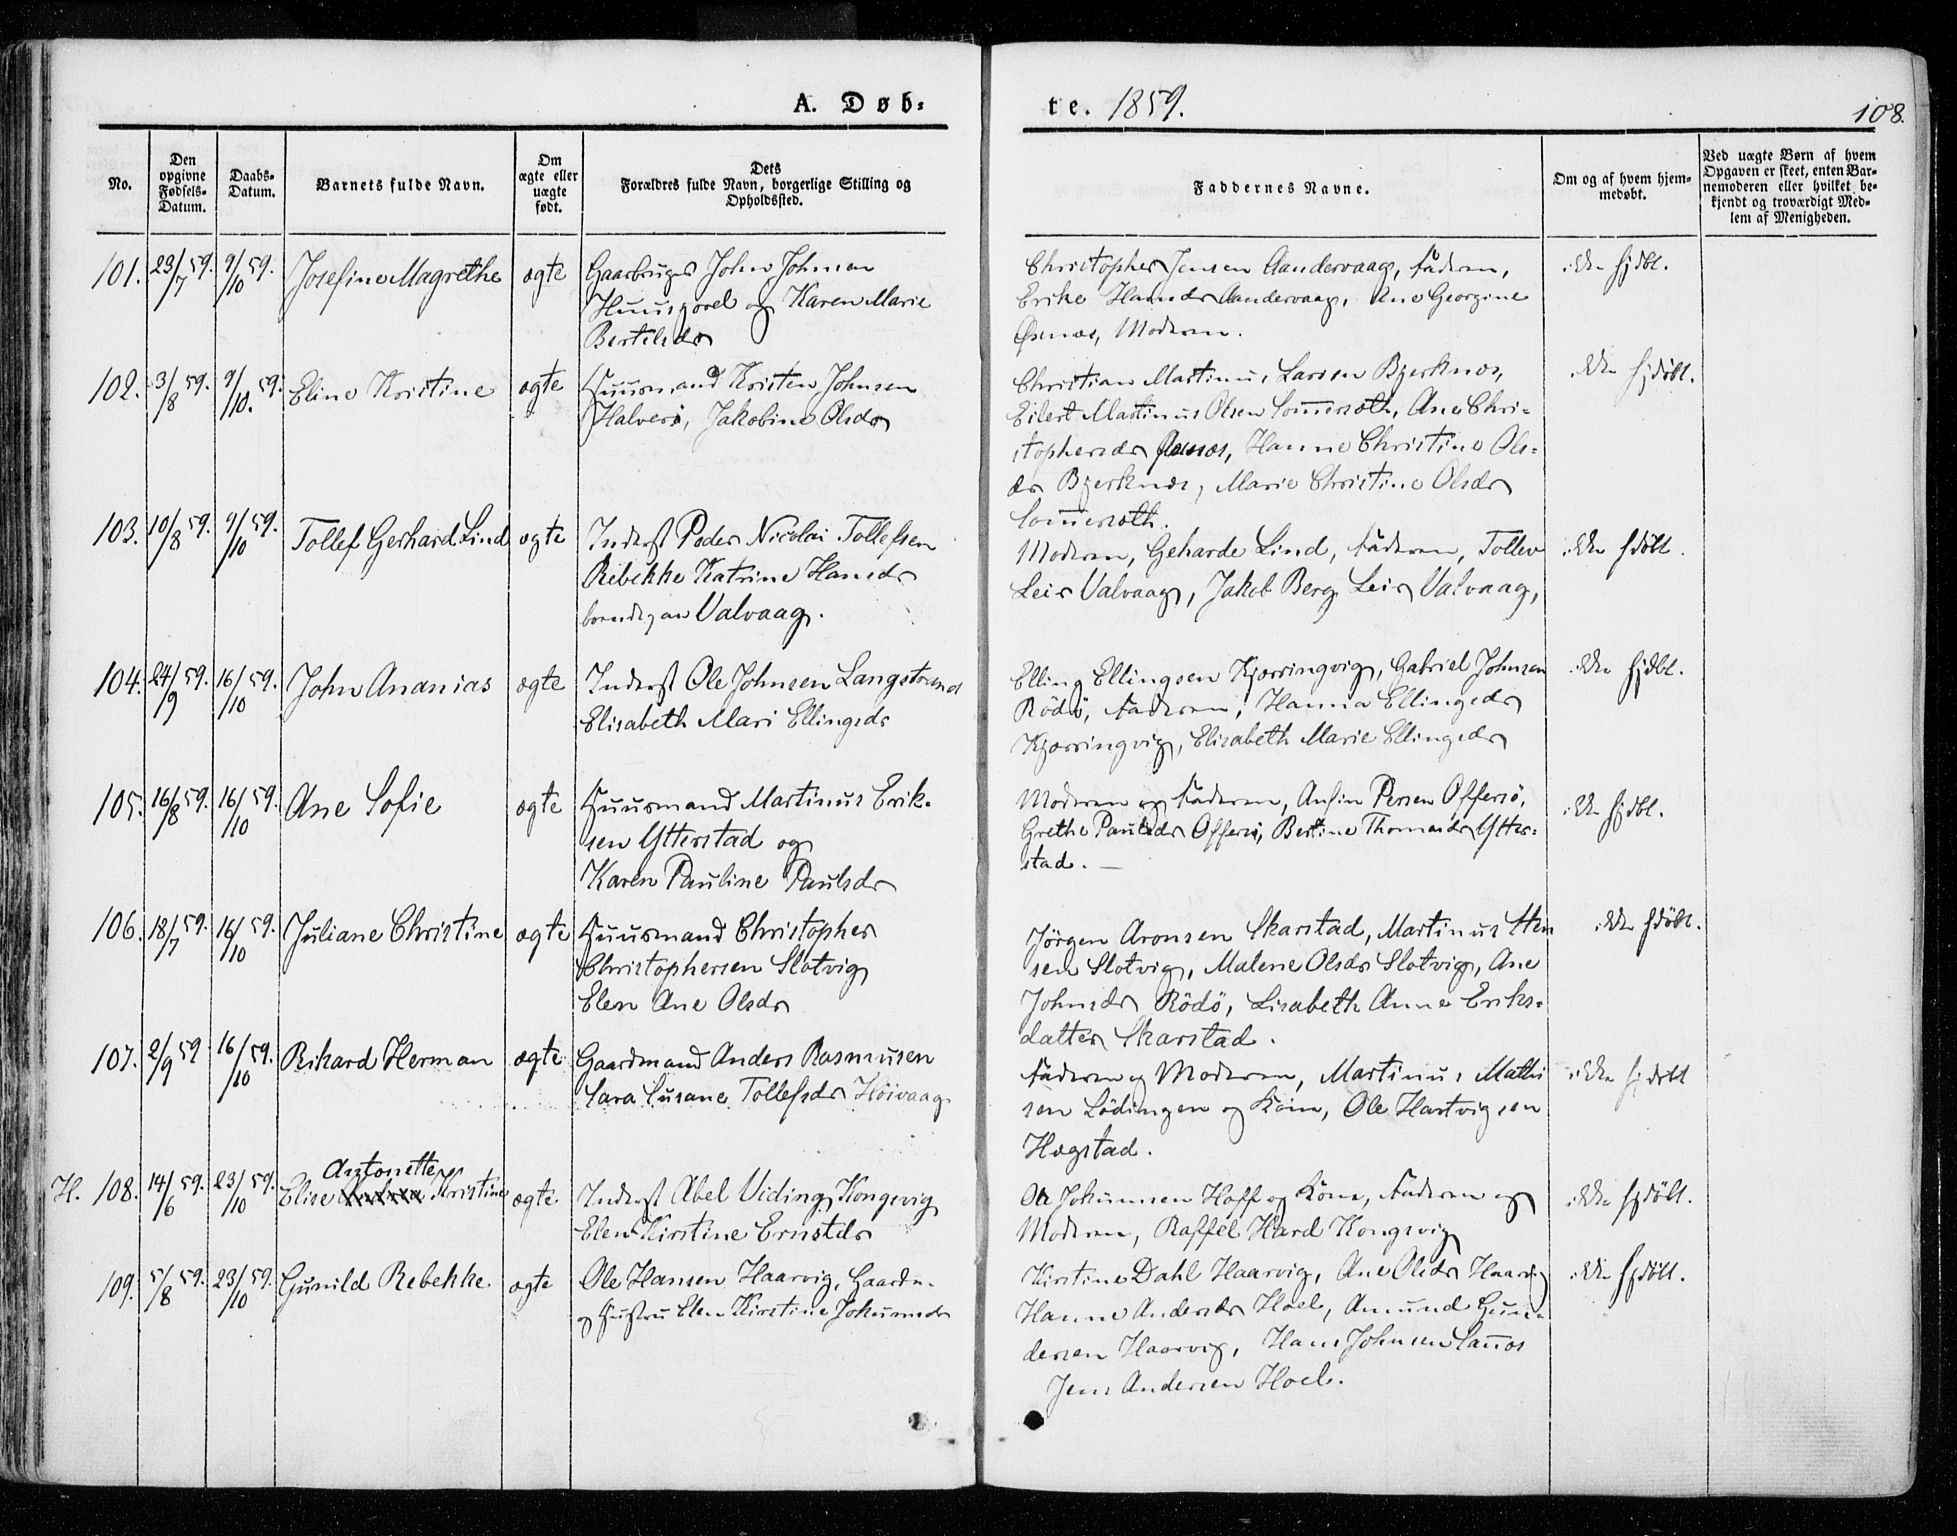 A. Døb-
te. 1859.
108.
No.
Den opgivne Fødsels-Datum.
Daabs-Datum.
Barnets fulde Navn.
Om ægte eller uægte født.
Dets Forældres fulde Navn, borgerlige Stilling og Opholdssted.
Faddernes Navne.
Om og af hvem hjem-medøbt.
Ved uægte Børn af hvem Opgaven er skeet, enten Bar-nemoderen eller hvilket be-kjendt og troværdigt Med-lem af Menigheden.
101. 23/7 59. 9/10 59. Josefine Magrethe ægte Gaarbruger John Johnsen
Huusgorel og Karen Marie
Bertelsdr
Christopher Jensen Aandervaag, Faderen,
Erike Hansdr Aandervaag, Ane Georgine
Øxnæs, Moderen.
ikke hjdbt.
102. 3/8 59. 9/10. 59. Eline Kristine ægte Huusmand Kristen Johnsen
Halverø, Jakobine Olsdr
Christian Martinus Larsen Bjerknæs,
Eilert Martinus Olsen Som̄eræth, Ane Chri-
stophersdr Øxnæs, Hanne Christine Ols-
dr Bjerknæs, Marie Christine Olsdr
Som̄eræth.
ikke hjdøbt.
103. 10/8 59. 9/10 59. Tollef Gerhard Lind ægte Inderst Peder Nicolai Tollefsen
Ribekke Katrine Hansdr
boende paa Valvaag.
Moderen, Geharde Lind, Faderen, Tollev
Leir Valvaag, Jakob Berg Leir Valvaag,
ikke hdøbt.
104. 24/9 59. 16/10 59. John Ananias ægte Inderst Ole Johnsen Langstrand
Elisabeth Mari Ellingsdr
Elling Ellingsen Kjærringvig, Gabriel Johnsen
Rödø, Faderen, Hanna Ellingsdr
Kjærringvig, Elisabeth Marie Ellingsdr
ikke hjdbt.
105. 16/8 59. 16/10 59. Ane Sofie ægte Huusmand Martinus Erik-
sen Ytterstad og
Karen Pauline Paulsdr
Moderen og Faderen, Anfin Persen Offersö,
Grethe Paulsdr Offersö, Bertine Thomasdr Ytter-
stad. —
ikke hjdbt.
106. 18/7 59. 16/10 59. Juliane Christine ægte Huusmand Christopher
Christophersen Slotvig
Elen Ane Olsdr
Jörgen Aronsen Skarstad, Martinus
sen Slotvig, Malene Olsdr Slotvig, Ane
Johnsdr Rödø, Lisabeth Anne Eriks-
datter Skarstad.
ikke hdøbt.
107. 2/9 59 16/10 59. Rikard Herman ægte Gaardmand Anders Rasmusen
Sara Susane Tollefsdr Höivaag
Faderen og Moderen, Martinus Mathi
sen Lödingen og Kone, Ole Hartvigsen
Hægstad.
ikke hjdøbt
H. 108. 14/6 59. 23/10 59. Elise Antonette Kristine ægte Inderst Abel Viding Kongsvig
Elen Kirstine Ernstdr
Ole Johannsen Hoff og Kone, Faderen og
Moderen, Raffel Hard Kongsvig
ikke hjdöbt.
109. 5/8 59. 23/10 59. Gunild Rebekke. ægte Ole Hansen Haarvig, Gaardm.
og Hustru Elen Kirstine Johannsdr
Kirstine Dahl Haarvig, Ane Olsdr Haarvig
Hanne Andersdr Hoel, Amund Gun-
dersen Haarvig, Hans Johnsen San̄æs
Jens Andersen Hoel.
ikke hjdöbt.